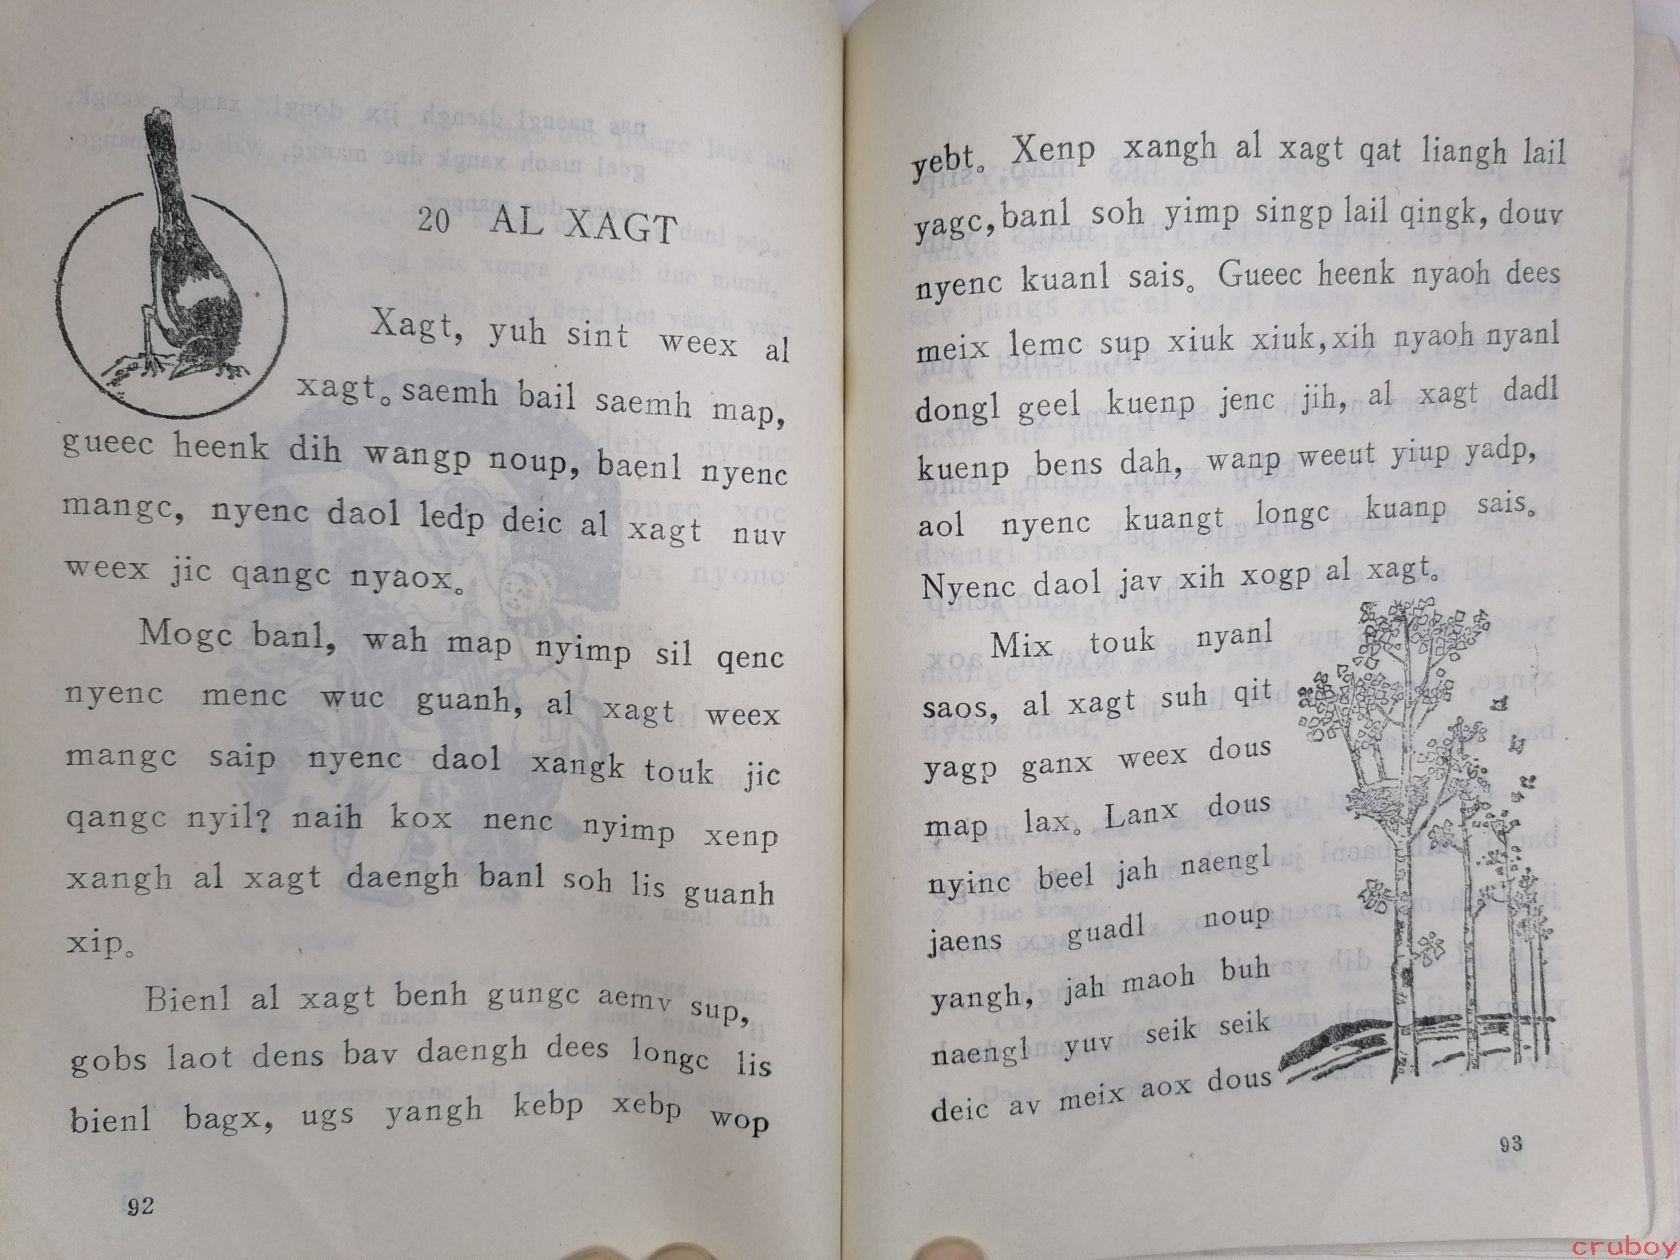 20 AL XAGT
Xagt, yuh sint weex al
xagt。saemh bail saemh map,
gueec heenk dih wangp noup, baenl nyenc
mangc, nyenc daol ledp deic al xagt nuv
weex jic qangc nyaox。
Mogc banl, wah map nyimp sil qenc
nyenc menc wuc guanh, al xagt weex
mangc saip nyenc daol xangk touk jic
qangc nyil? naih kox nenc nyimp xenp
xangh al xagt daengh banl soh lis guanh
xip。
Bienl al xagt benh gungc aemv sup,
gobs laot dens bav daengh dees longc lis
bienl bagx, ugs yangh kebp xebp wop
92
yebt。Xenp xangh al xagt qat liangh lail
yagc, banl soh yimp singp lail qingk, douv
nyenc kuanl sais。Gueec heenk nyaoh dees
meix lemc sup xiuk xiuk, xih nyaoh nyanl
dongl geel kuenp jenc jih, al xagt dadl
kuenp bens dah, wanp weeut yiup yadp,
aol nyenc kuangt longc kuanp sais。
Nyenc daol jav xih xogp al xagt。
Mix touk nyanl
saos, al xagt suh qit
yagp ganx weex dous
map lax。Lanx dous
nyinc beel jah naengl
jaens guadl noup
yangh, jah maoh buh
naengl yuv seik seik
deic av meix aox dous
93
cruboy